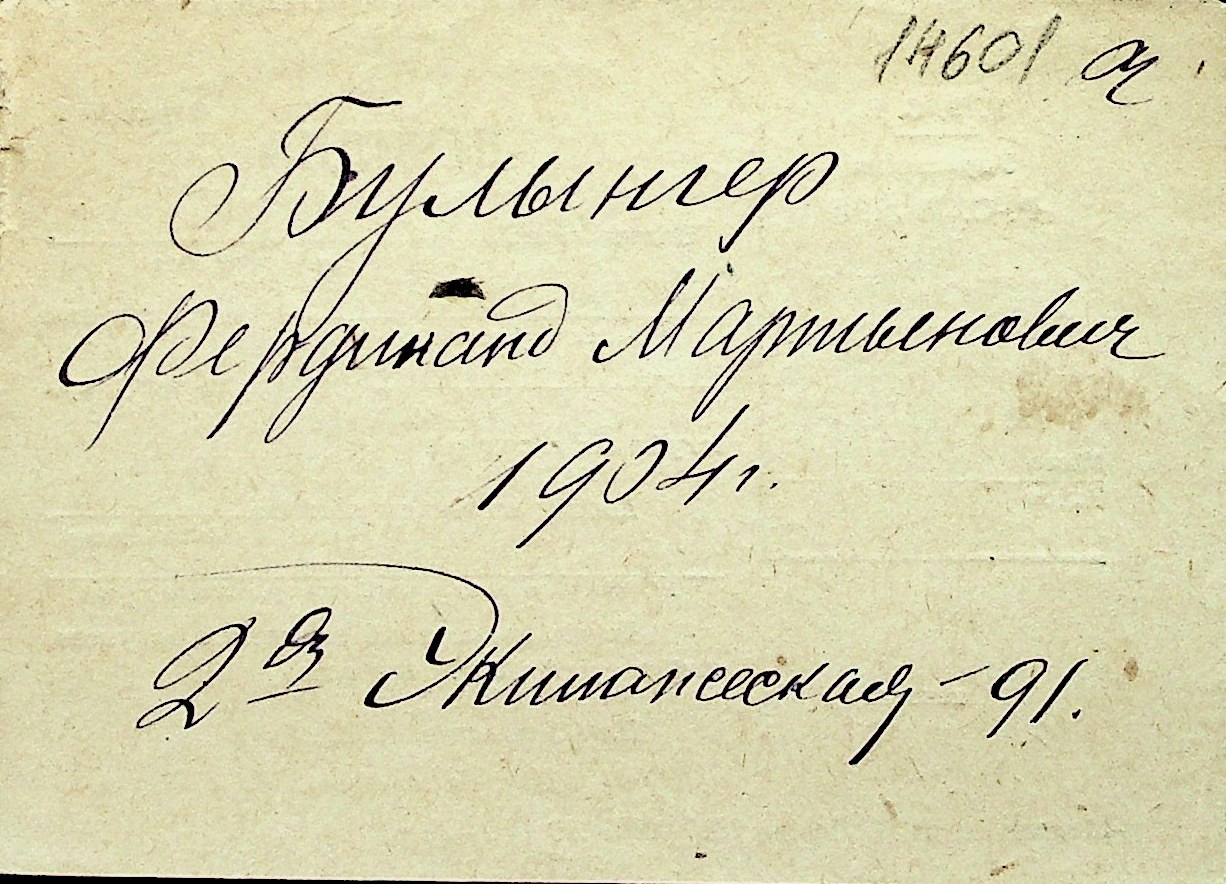 14601 я
Булынгер
Фердинанд Мартынович
1904 г.
2 я Экипажеская - 91.